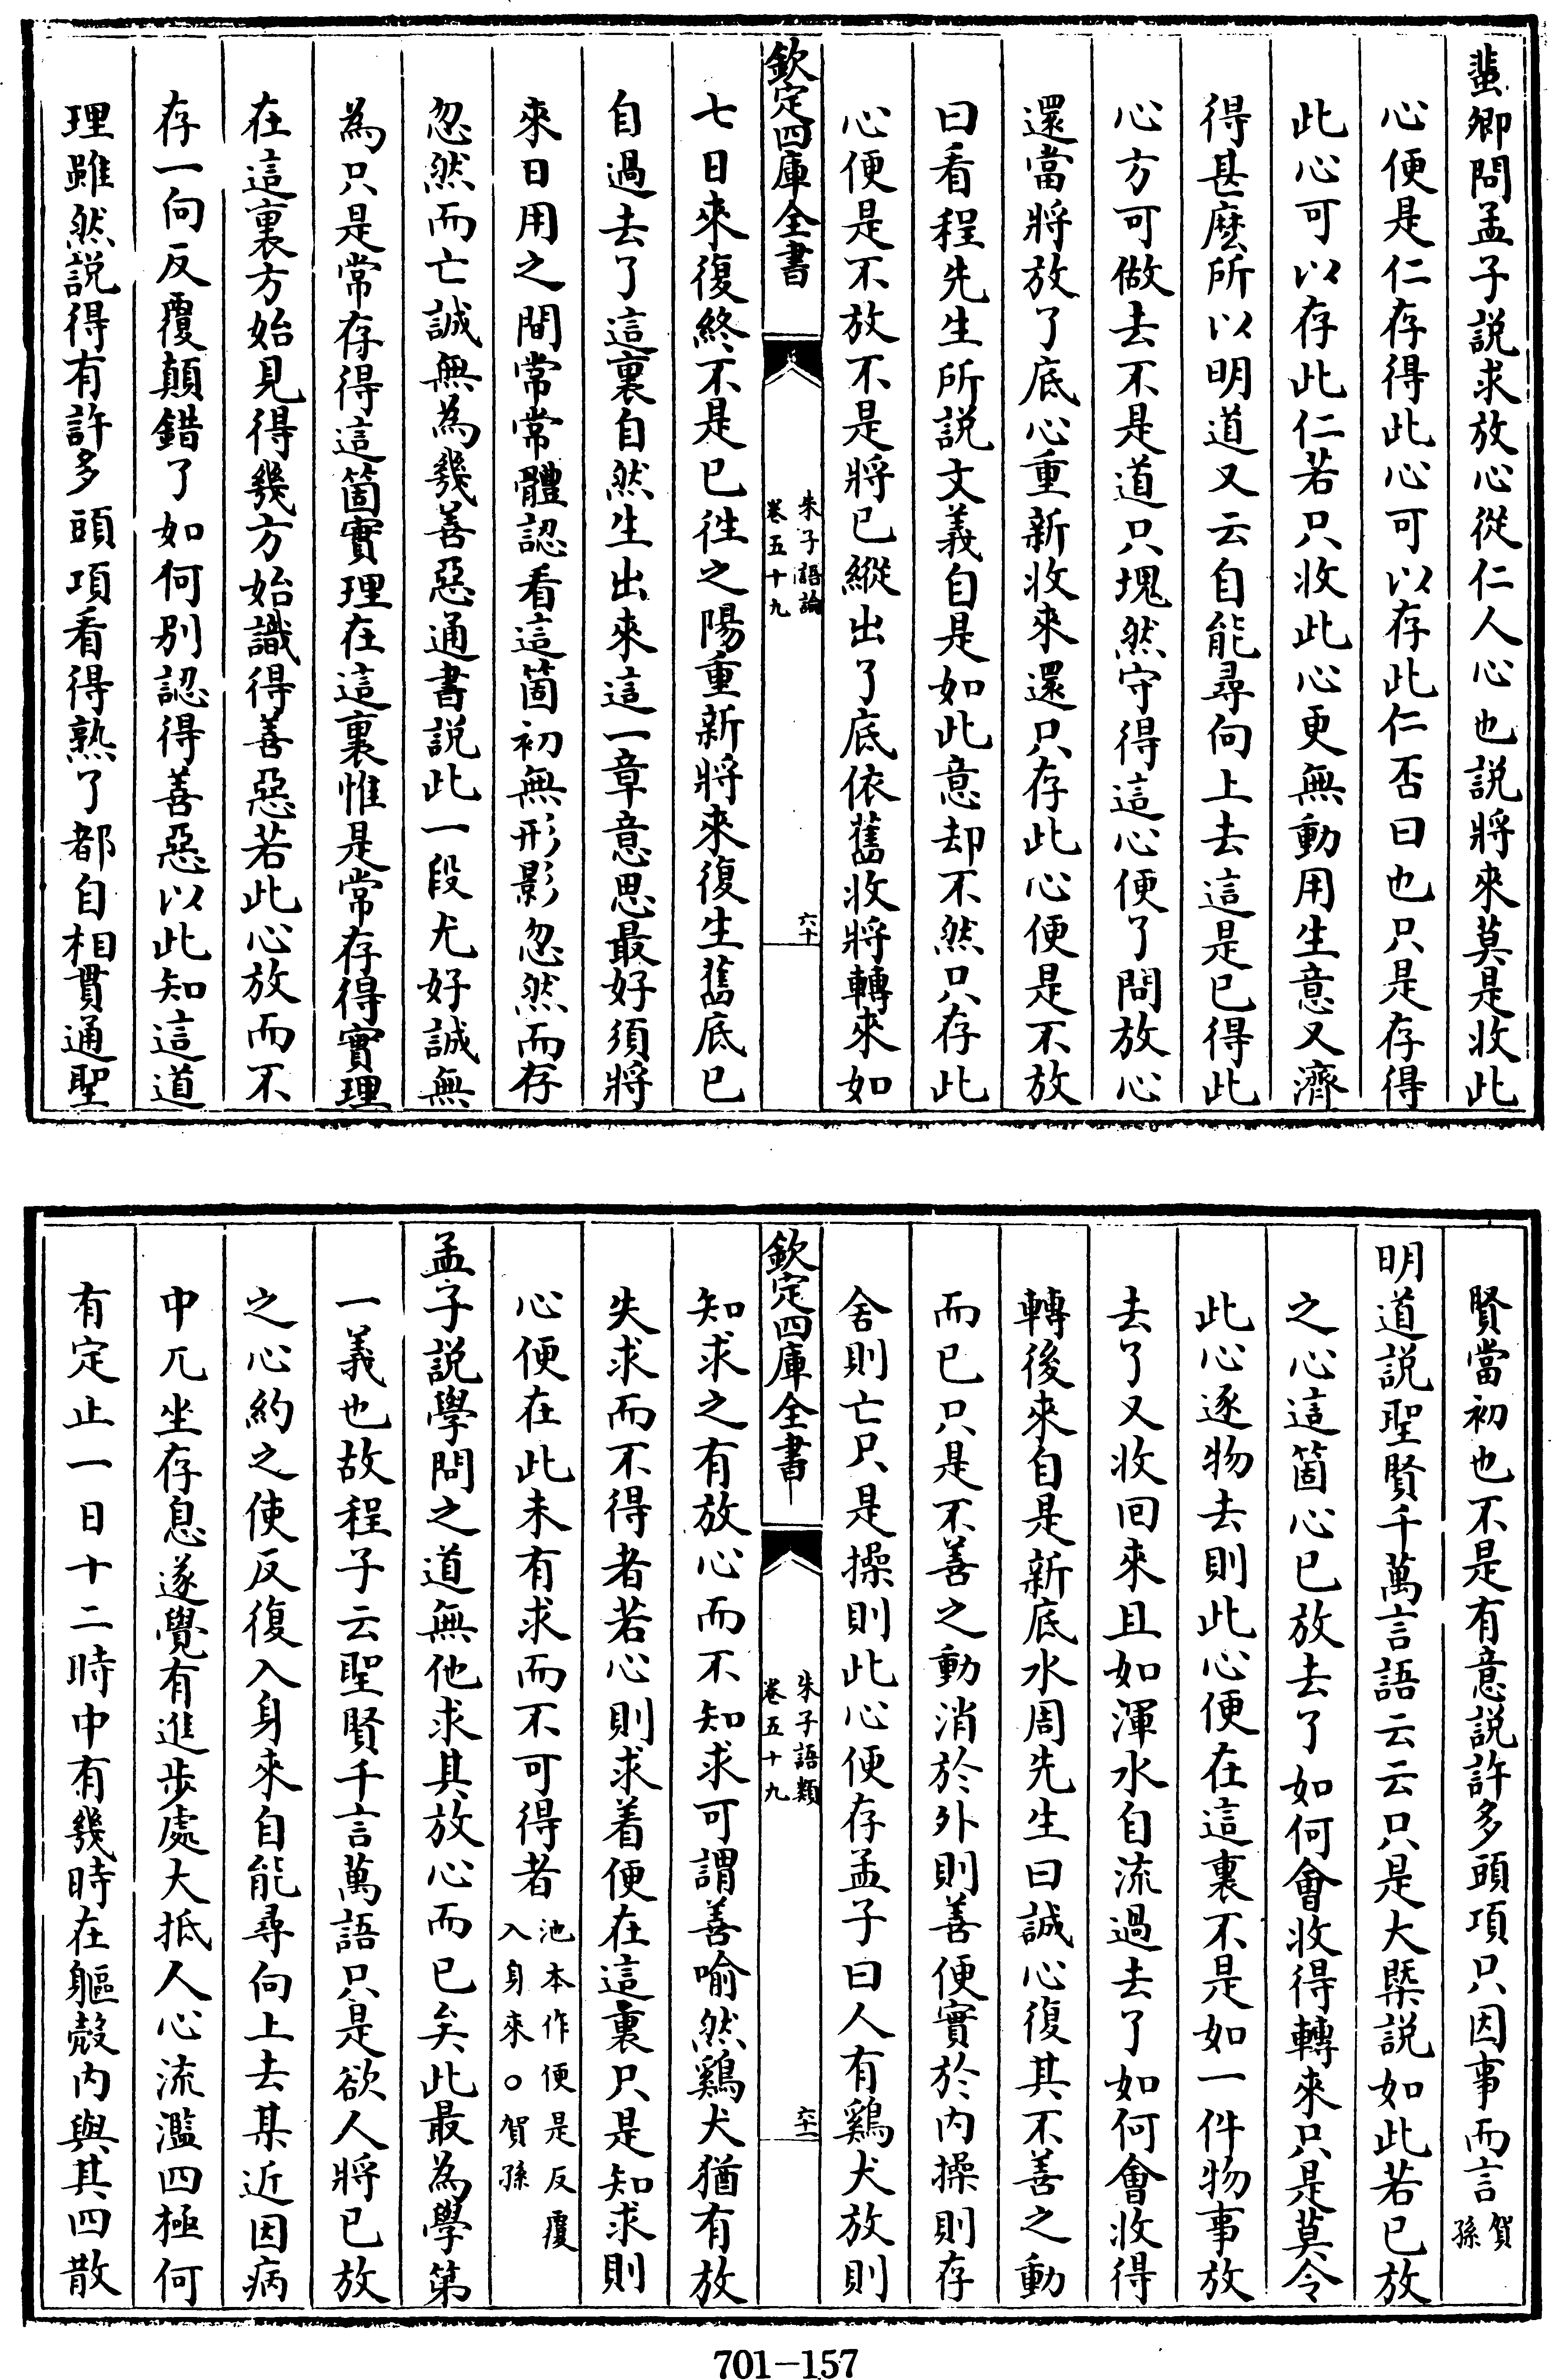 蜚卿問孟子説求放心從仁人心也説將來莫是收此
心便是仁存得此心可以存此仁否曰也只是存得
此心可以存此仁若只收此心更無動用生意又濟
得甚麽所以明道又云自能尋向上去這是已得此
心方可做去不是道只塊然守得這心便了問放心
還當將放了底心重新收來還只存此心便是不放
曰看程先生所説文義自是如此意却不然只存此
心便是不放不是將已縱出了底依舊收將轉來如
欽定四庫全書
朱子語論
卷五十九
六十
七日來復終不是已徃之陽重新將來復生舊底已
自過去了這裏自然生出來這一章意思最好須將
來日用之間常常體認看這箇初無形影忽然而存
忽然而亡誠無為幾善惡通書説此一段尤好誠無
為只是常存得這箇實理在這裏惟是常存得實理
在這裏方始見得幾方始識得善惡若此心放而不
存一向反覆顛錯了如何别認得善惡以此知這道
理雖然説得有許多頭項看得熟了都自相貫通聖
賢當初也不是有意説許多頭項只因事而言賀孫
明道説聖賢千萬言語云云只是大槩説如此若已放
之心這箇心已放去了如何會收得轉來只是莫令
此心逐物去則此心便在這裏不是如一件物事放
去了又收回來且如渾水自流過去了如何會收得
轉後來自是新底水周先生曰誠心復其不善之動
而已只是不善之動消於外則善便實於内操則存
舍則亡只是操則此心便存孟子曰人有鷄犬放則
欽定四庫全書
朱子語類
卷五十九
六十一
知求之有放心而不知求可謂善喻然鷄犬猶有放
失求而不得者若心則求着便在這裏只是知求則
心便在此未有求而不可得者池本作便是反覆入身來○賀孫
孟子説學問之道無他求其放心而已矣此最為學第
一義也故程子云聖賢千言萬語只是欲人將已放
之心約之使反復入身來自能尋向上去某近因病
中兀坐存息遂覺有進步處大抵人心流濫四極何
有定止一日十二時中有幾時在軀殻内與其四散
701-157